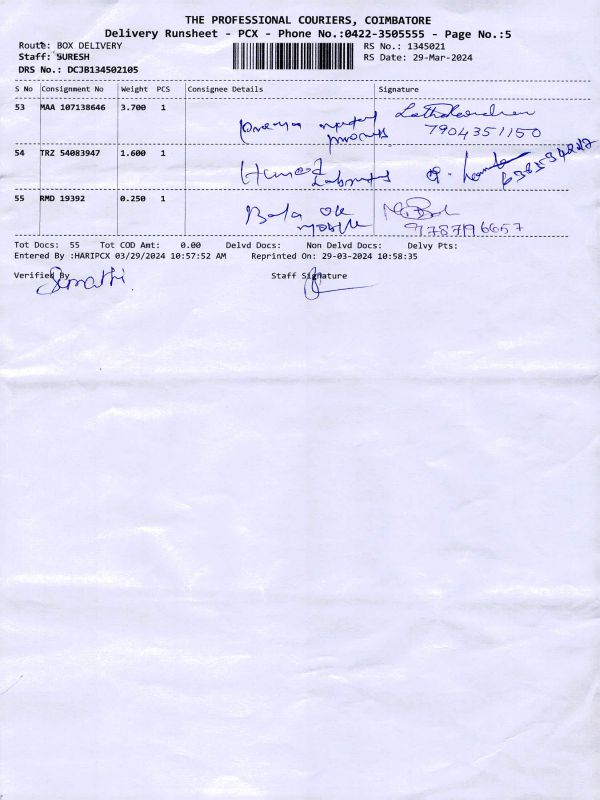 THE PROFESSIONAL COURIERS, COIMBATORE
Delivery Runsheet - PCX - Phone No.:0422-3505555 - Page No.:5
Route: BOX DELIVERY RS No.: 1345021
Staff: SURESH RS Date: 29-Mar-2024
DRS No.: DCJB134502105
S No Consignment No Weight PCS Consignee Details Signature
53 MAA 107138646 3.700 1
7904351150
54 TRZ 54083947 1.600 1
55 RMD 19392 0.250 1
Bala
mobile
9787196657
Tot Docs: 55 Tot COD Amt: 0.00 Delvd Docs: Non Delvd Docs: Delvy Pts:
Entered By :HARIPCX 03/29/2024 10:57:52 AM Reprinted On: 29-03-2024 10:58:35
Verified By Staff Signature